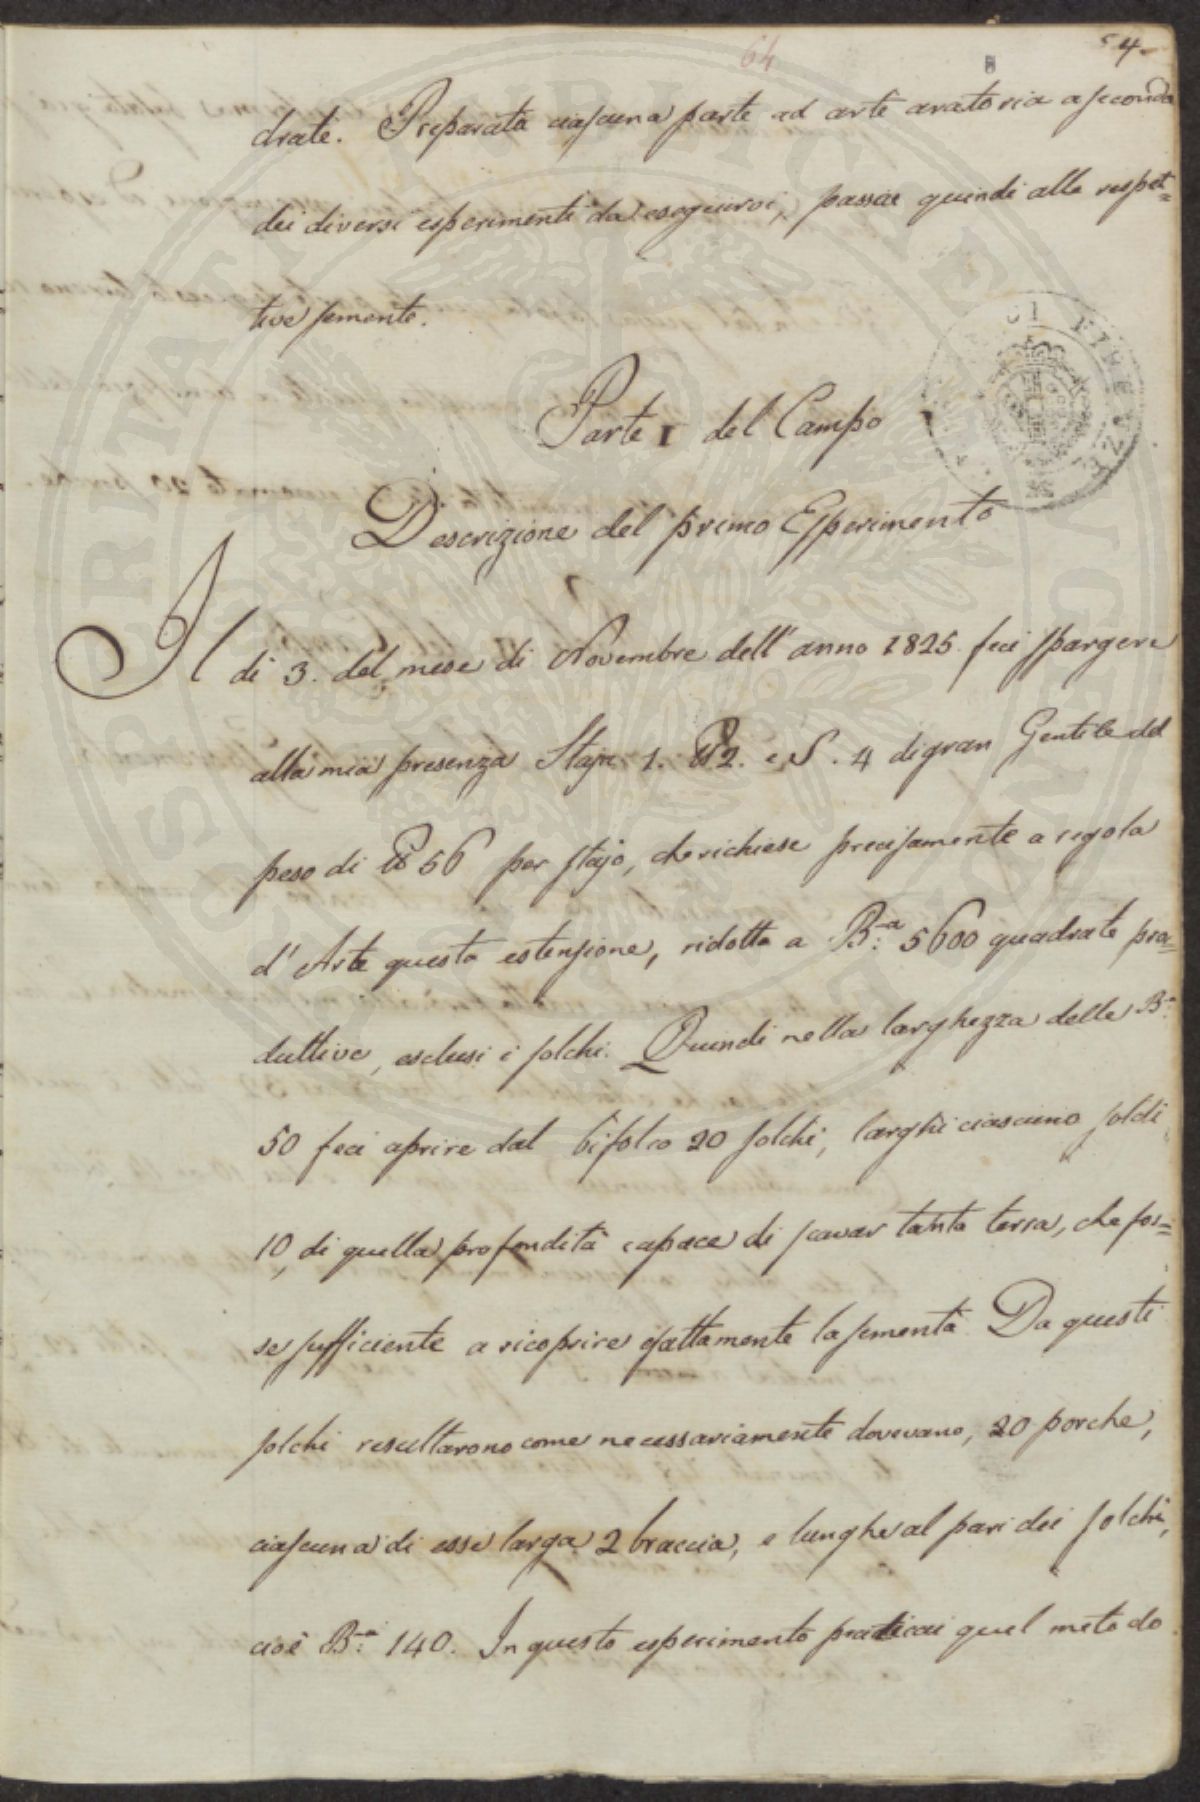 64
54
drate. Preparata ciascuna parte ad arte aratoria a seconda
dei diversi esperimenti da eseguirsi, passai quindi alle respet=
tive semente.
Parte I del Campo
Descrizione del primo Esperimento
Il dì 3. del mese di Novembre dell'anno 1825. feci spargere
alla mia presenza Staja 1. ℔ 2. e S. 4 di gran Gentile del
peso di ℔ 56 per stajo, che richiese precisamente a regola
d'Arte questa estensione, ridotta a B.ª 5600 quadrate pro=
duttive, esclusi i solchi. Quindi nella larghezza delle B.ª
50 feci aprire dal bifolco 20 solchi, larghi ciascuno soldi
10, di quella profondità capace di scavar tanta terra, che fos=
se sufficiente a ricoprire esattamente la sementa. Da questi
solchi resultarono come necessariamente dovevano, 20 porche,
ciascuna di esse larga 2 braccia, e lunghe al pari dei solchi,
cioè B.ª 140. In questo esperimento praticai quel metodo